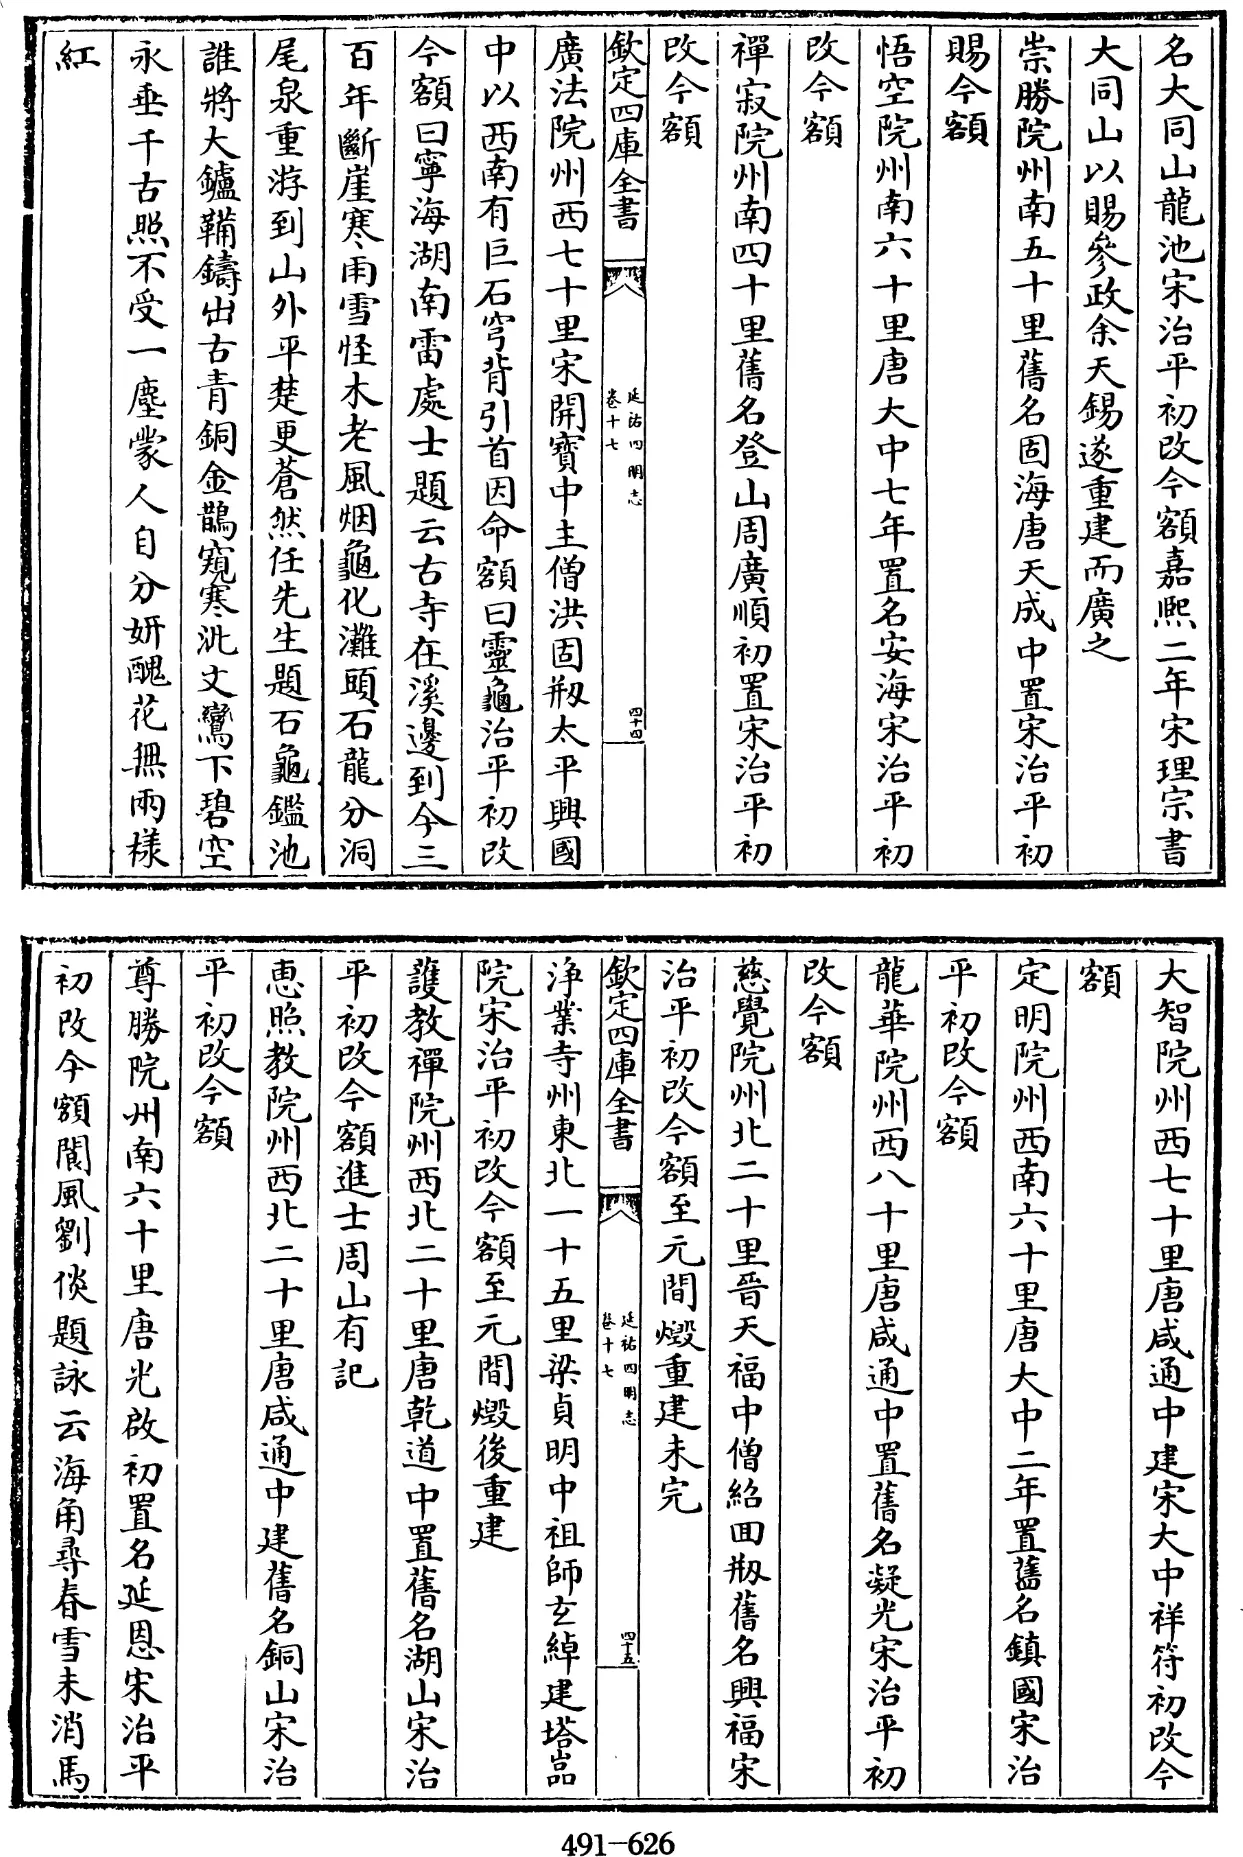 名大同山龍池宋治平初改今額嘉熙二年宋理宗書
大同山以賜參政余天錫遂重建而廣之
崇勝院州南五十里舊名固海唐天成中置宋治平初
賜今額
悟空院州南六十里唐大中七年置名安海宋治平初
改今額
禪寂院州南四十里舊名登山周廣順初置宋治平初
改今額
欽定四庫全書
延祐四明志
卷十七
四十四
廣法院州西七十里宋開寶中主僧洪固刱太平興國
中以西南有巨石穹背引首因命額曰靈龜治平初改
今額曰寧海湖南雷處士題云古寺在溪邊到今三
百年斷崖寒雨雪怪木老風烟龜化灘頭石龍分洞
尾泉重游到山外平楚更蒼然任先生題石龜鑑池
誰將大鑪鞴鑄出古青銅金鵲窺寒沘文鸞下碧空
永垂千古照不受一塵蒙人自分妍醜花無兩樣
紅
大智院州西七十里唐咸通中建宋大中祥符初改今
額
定明院州西南六十里唐大中二年置舊名鎮國宋治
平初改今額
龍華院州西八十里唐咸通中置舊名凝光宋治平初
改今額
慈覺院州北二十里晉天福中僧紹囬刱舊名興福宋
治平初改今額至元間燬重建未完
欽定四庫全書
延祐四明志
卷十七
四十五
淨業寺州東北一十五里梁貞明中祖師玄綽建塔嵓
院宋治平初改今額至元間燬後重建
護教禪院州西北二十里唐乾道中置舊名湖山宋治
平初改今額進士周山有記
惠照教院州西北二十里唐咸通中建舊名銅山宋治
平初改今額
尊勝院州南六十里唐光啟初置名延恩宋治平
初改今額閬風劉倓題詠云海角尋春雪未消馬
491-626